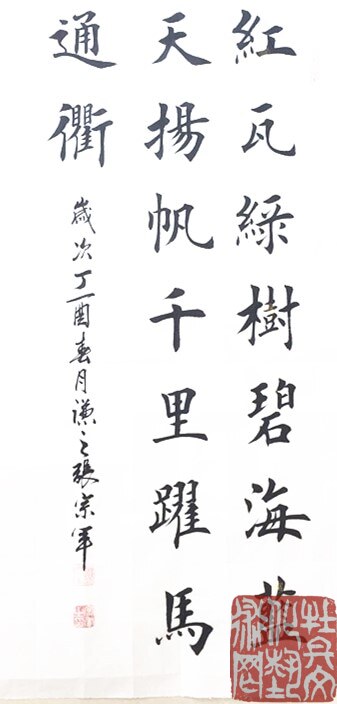 紅瓦綠樹碧海藍
天揚帆千里躍馬
通衢
歲次丁酉春月謙之張宗軍